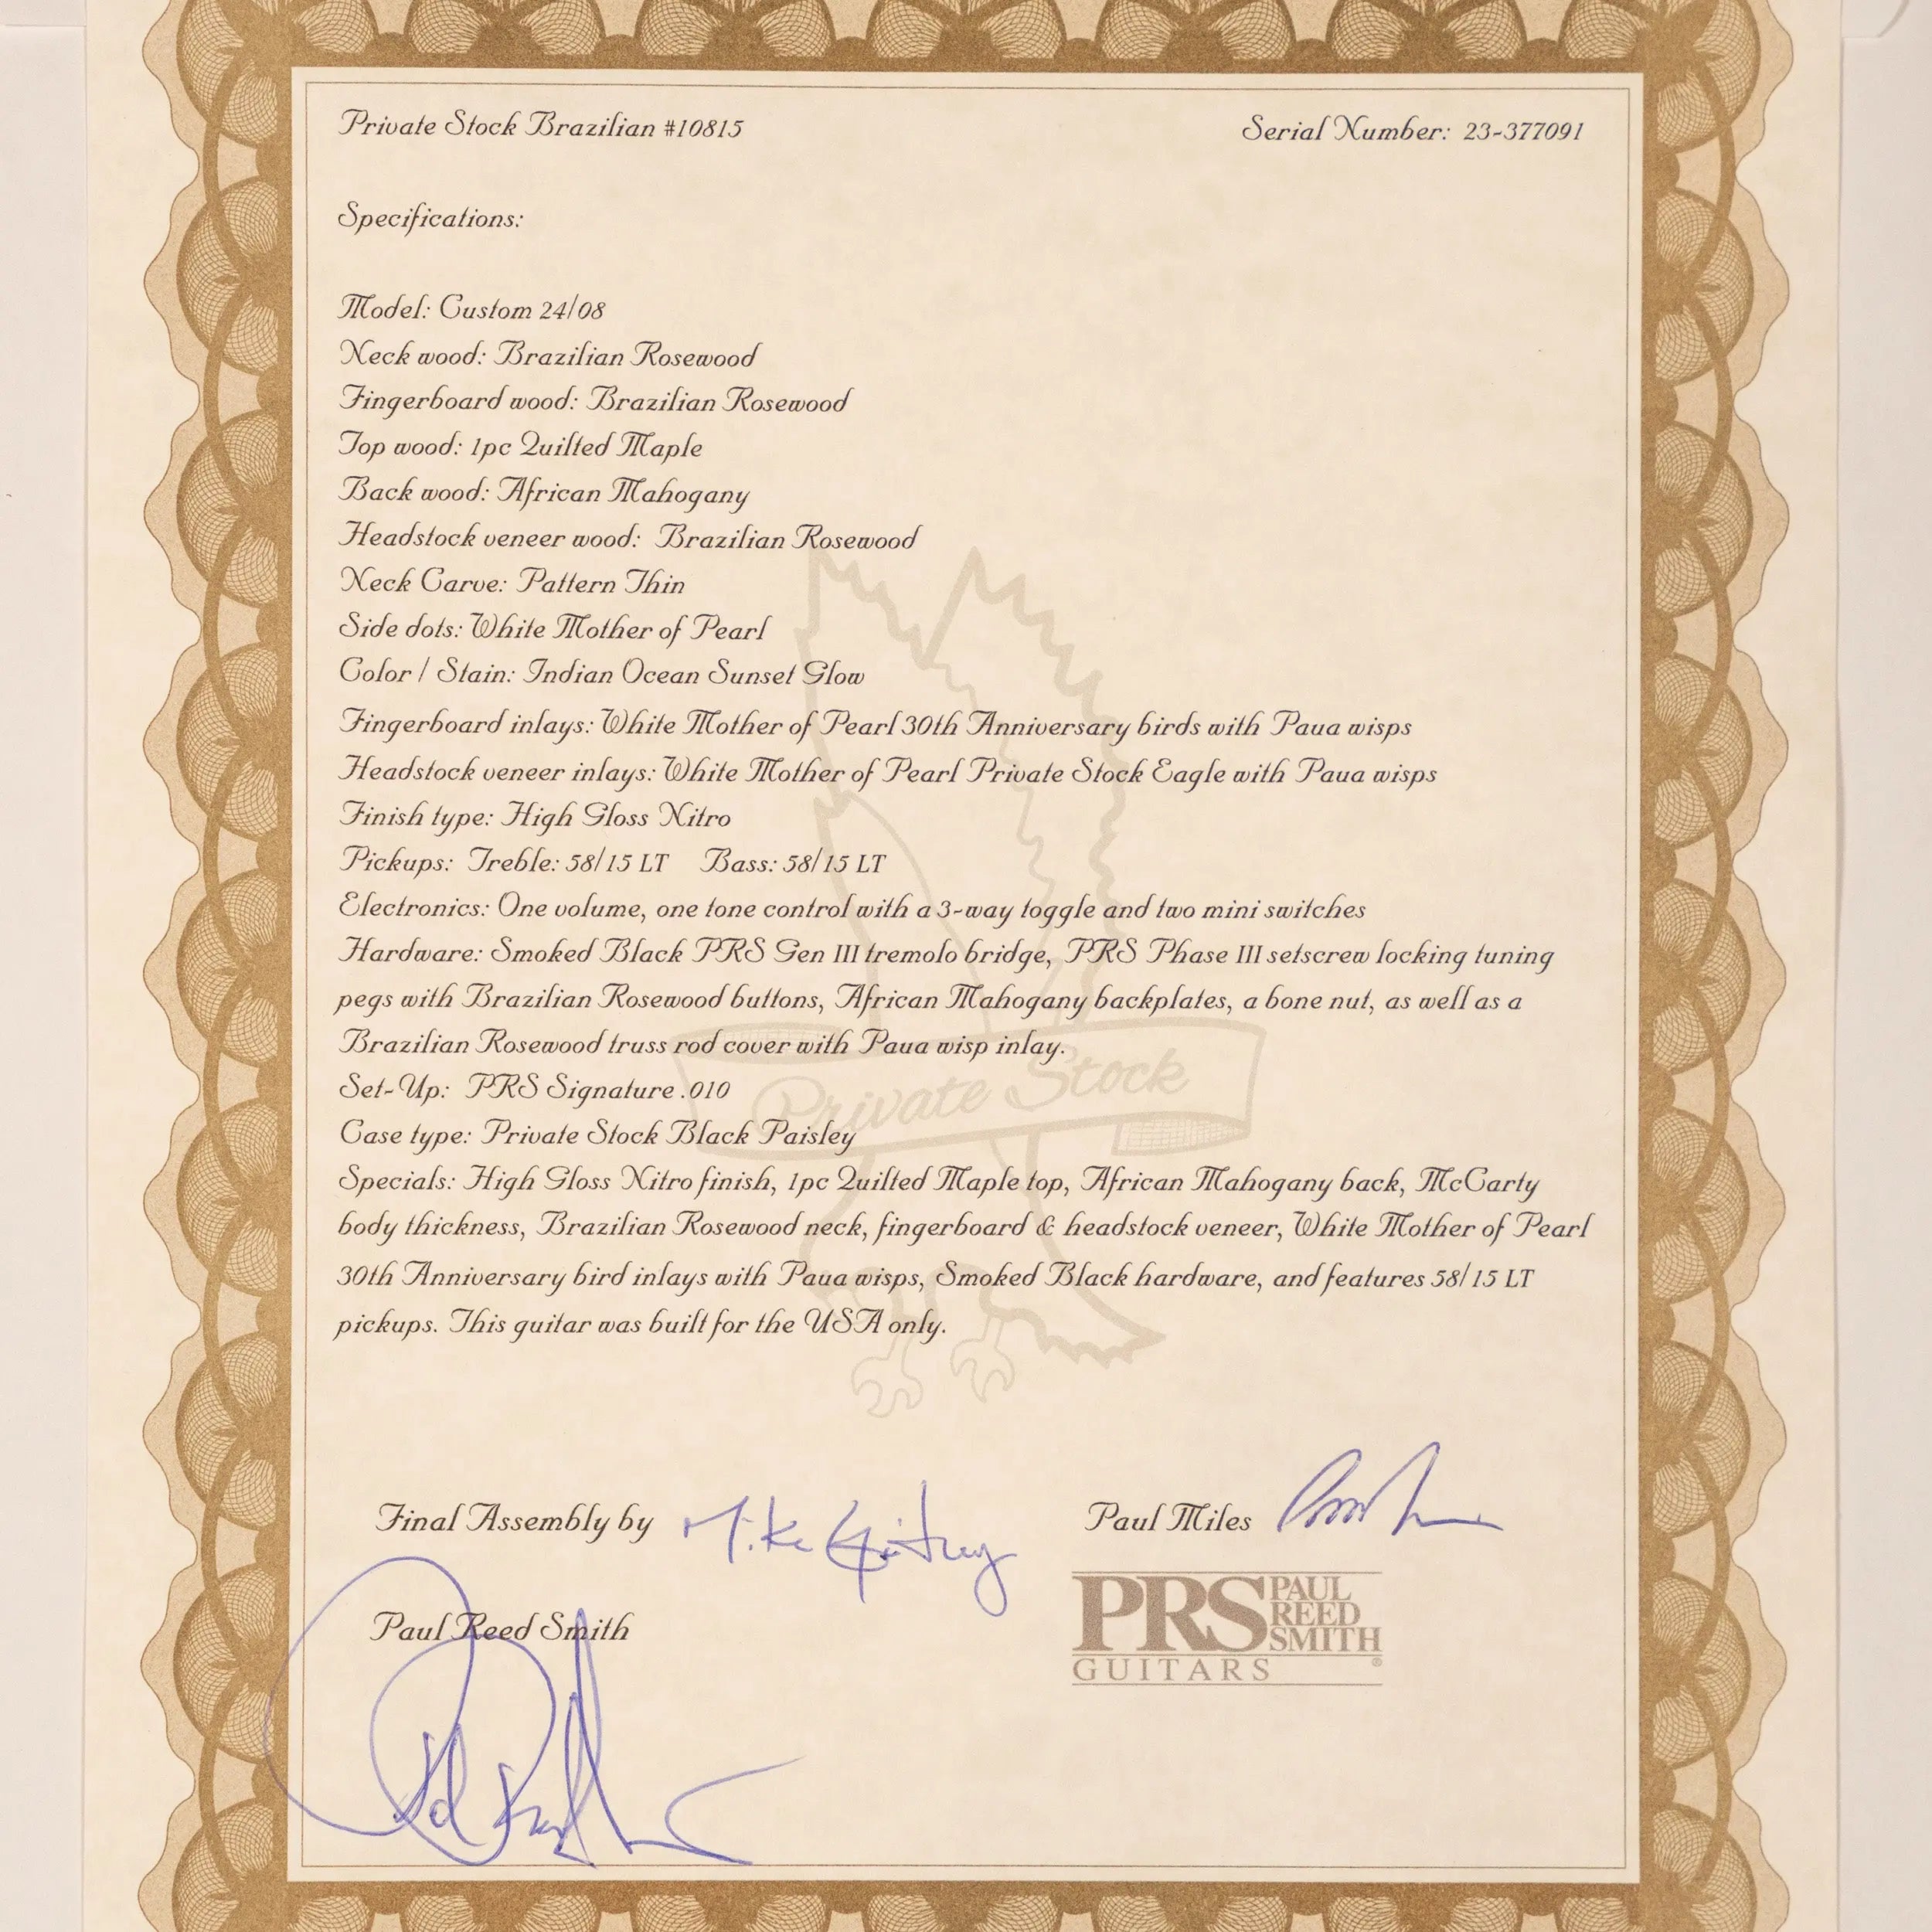 Private Stock Brazilian #10815
Serial Number: 23-377091
Specifications:
Model: Custom 24/08
Neck wood: Brazilian Rosewood
Fingerboard wood: Brazilian Rosewood
Top wood: 1pc Quilted Maple
Back wood: African Mahogany
Headstock veneer wood: Brazilian Rosewood
Neck Carve: Pattern Thin
Side dots: White Mother of Pearl
Color / Stain: Indian Ocean Sunset Glow
Fingerboard inlays: White Mother of Pearl 30th Anniversary birds with Paua wisps
Headstock veneer inlays: White Mother of Pearl Private Stock Eagle with Paua wisps
Finish type: High Gloss Nitro
Pickups: Treble: 58/15 LT Bass: 58/15 LT
Electronics: One volume, one tone control with a 3-way toggle and two mini switches
Hardware: Smoked Black PRS Gen III tremolo bridge, PRS Phase III setscrew locking tuning
pegs with Brazilian Rosewood buttons, African Mahogany backplates, a bone nut, as well as a
Brazilian Rosewood truss rod cover with Paua wisp inlay.
Private Stock
Set-Up: PRS Signature .010
Case type: Private Stock Black Paisley
Specials: High Gloss Nitro finish, 1pc Quilted Maple top, African Mahogany back, McCarty
body thickness, Brazilian Rosewood neck, fingerboard & headstock veneer, White Mother of Pearl
30th Anniversary bird inlays with Paua wisps, Smoked Black hardware, and features 58/15 LT
pickups. This guitar was built for the USA only.
Final Assembly by Mike
Paul Miles
Paul Reed Smith
PRS PAUL
REED
SMITH
GUITARS ®